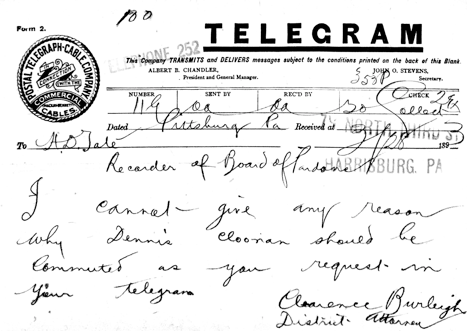 Form 2.
100
TELEGRAM
TELEPHONE 252
This Company TRANSMITS and DELIVERS messages subject to the conditions printed on the back of this Blank.
ALBERT B. CHANDLER,
President and General Manager.
JOHN O. STEVENS,
Secretary.
POSTAL TELEGRAPH-CABLE COMPANY
COMMERCIAL CABLES
NUMBER SENT BY REC'D BY CHECK
119 Oa Oa 20 Collect
Dated Pittsburg Pa Received at 1893
NORTH THIRD ST
HARRISBURG, PA
To A D Tate
Recorder of Board of Pardons
I cannot give any reason
why Dennis Cloonan should be
Commuted as you request in
Your telegram
Clarence Burleigh
District Attorney